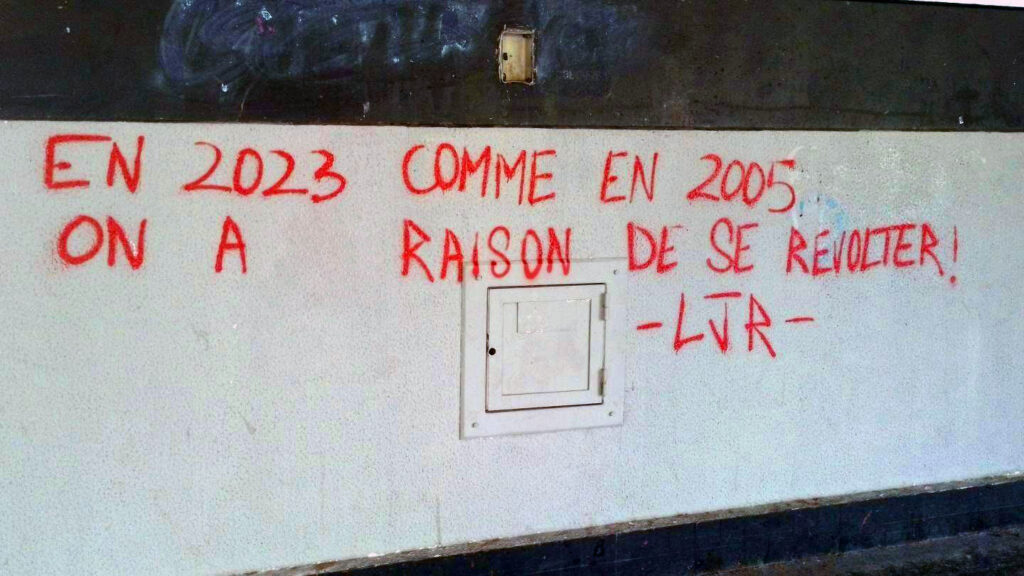 EN 2023 COMME EN 2005
ON A RAISON DE SE REVOLTER!
-LJR-